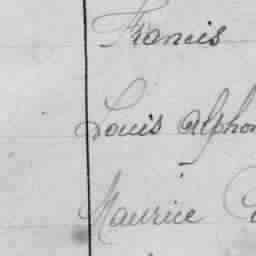 Francis
Louis Alphon
Maurice